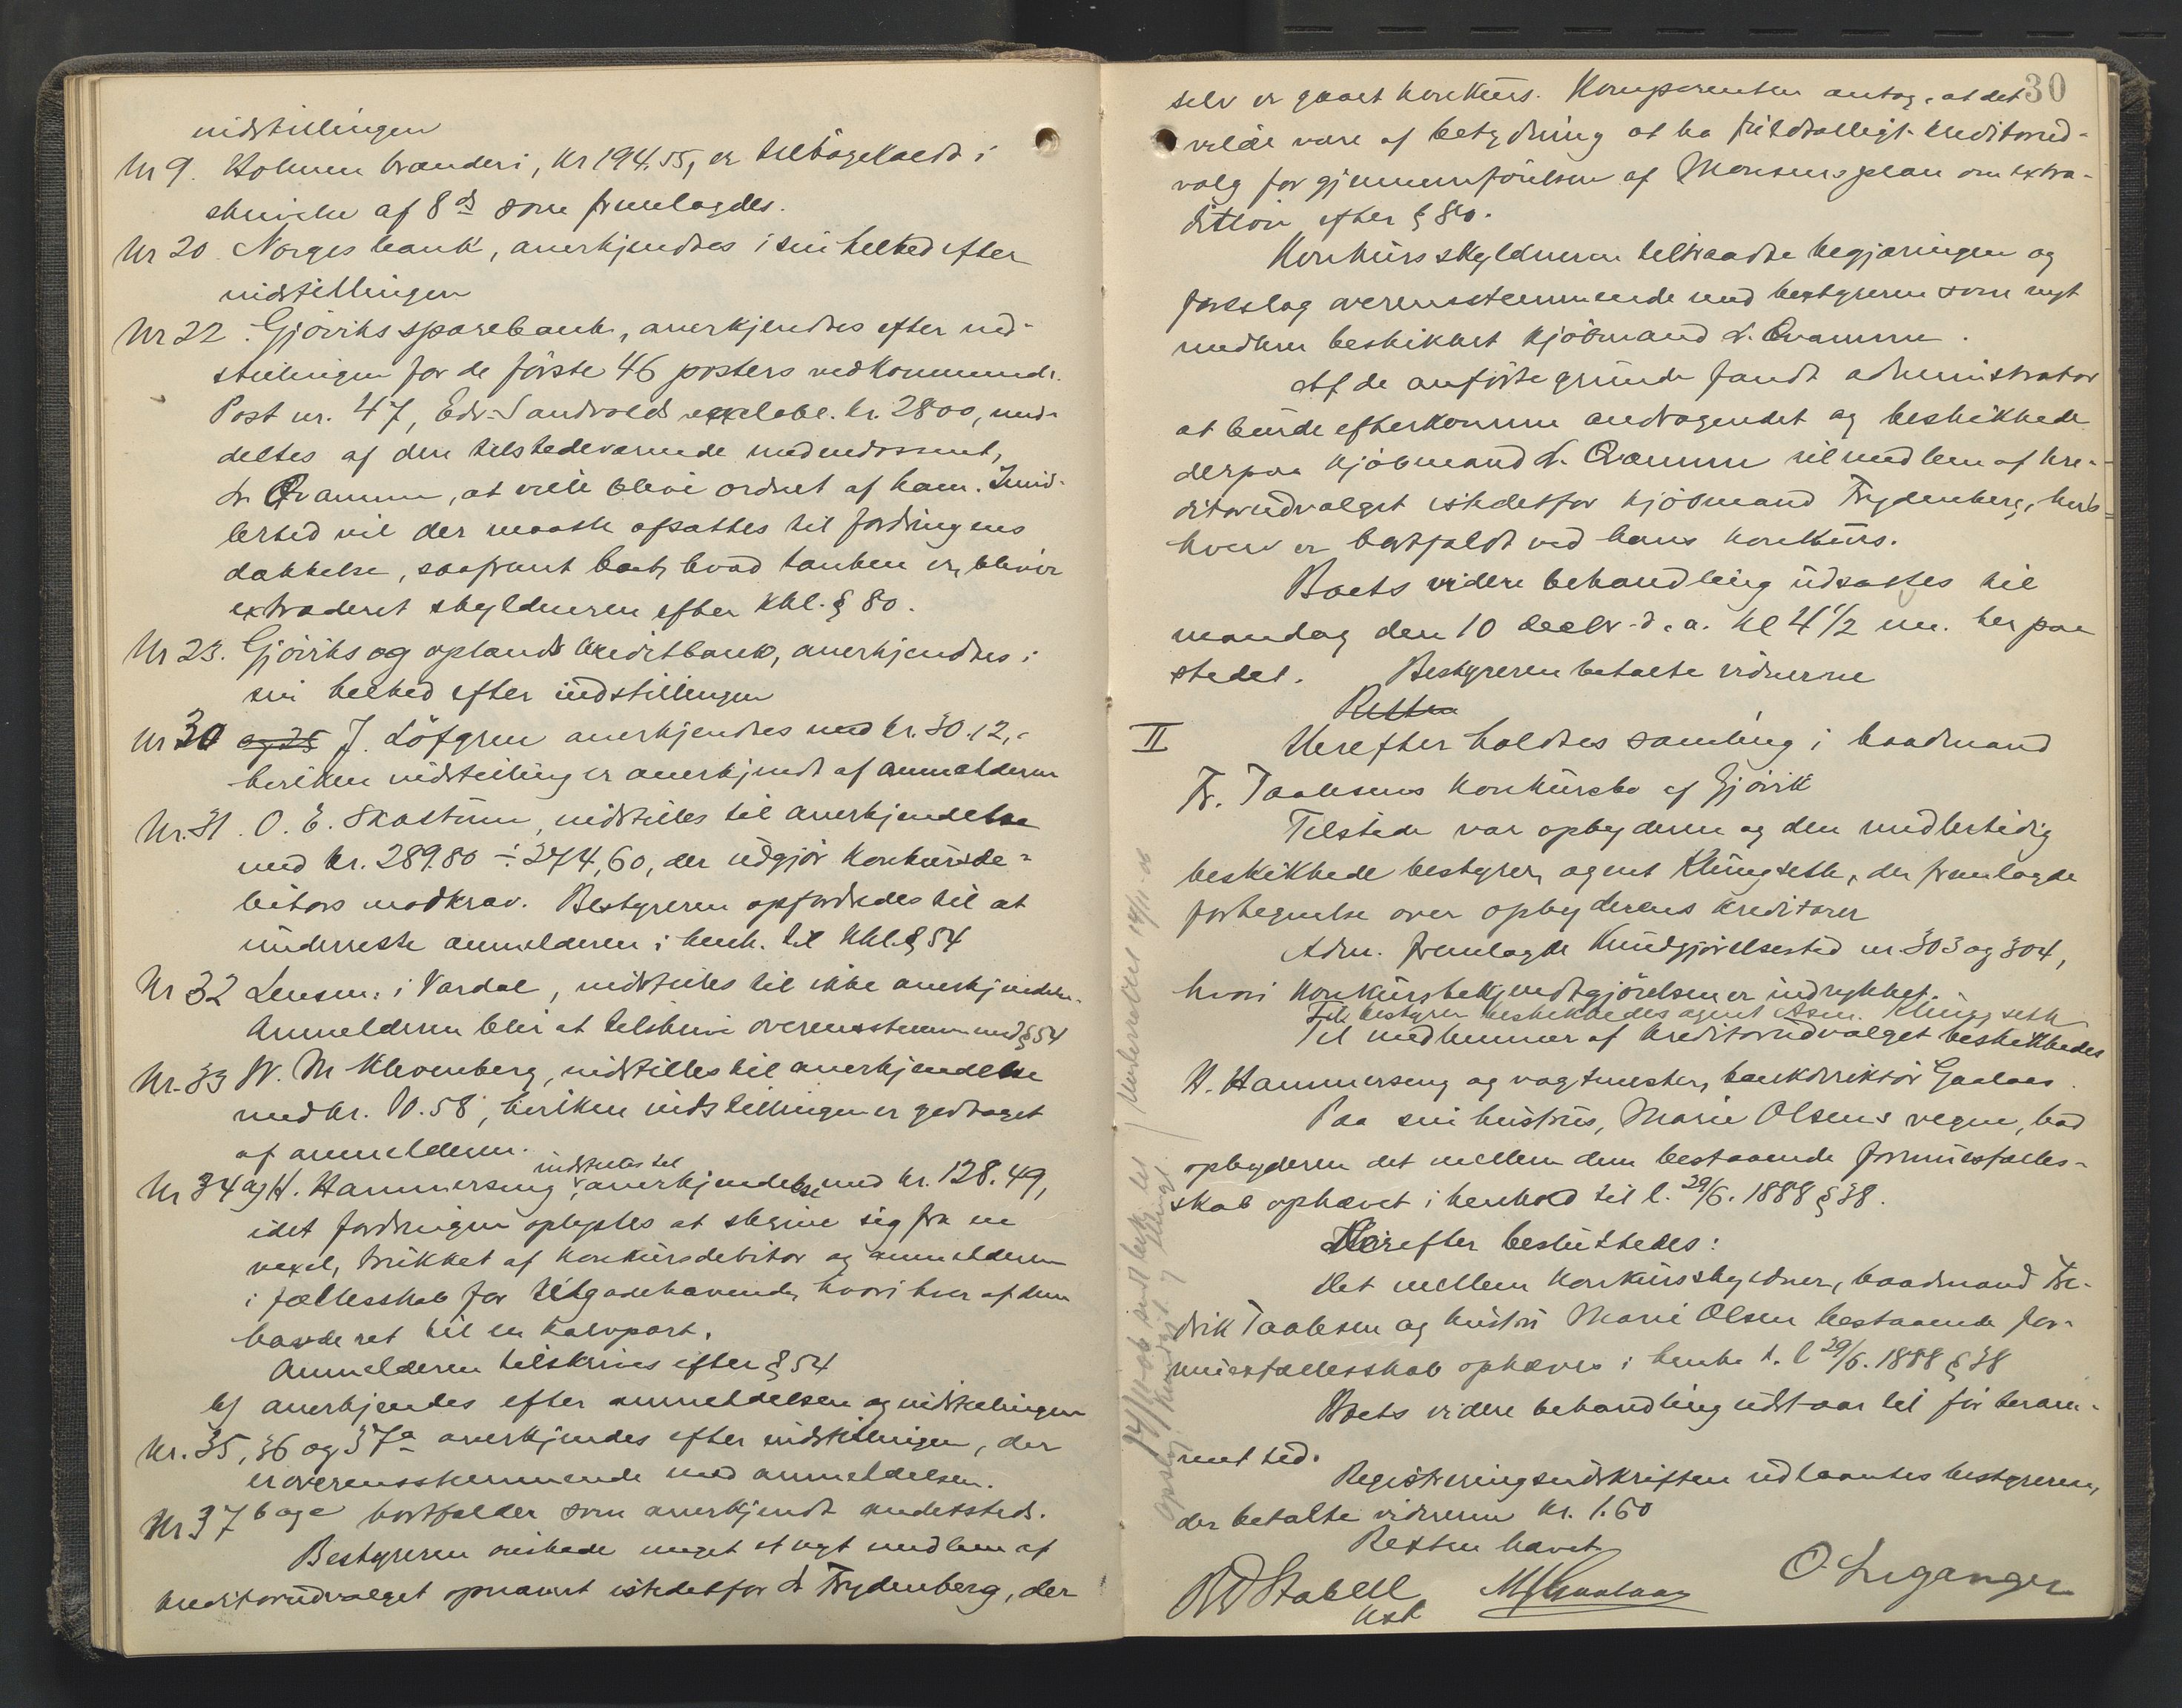 indstillingen
Nr 9. Holmen brænderi, kr 194.55, er tilbagekaldt i
skrivelse af 8 ds som fremlagdes.
Nr 20. Norges bank, anerkjendtes i sin helhed efter
indstillingen
Nr 22. Gjøviks sparebank, anerkjendtes efter ind-
stillingen for de første 46 posters vedkommende.
Post nr. 47, Edv. Sandvolds vexelobl. kr. 2800, med-
deltes af den tilstedeværende medendossent,
L. Qvamme, at ville blive ordnet af ham. Imid-
lertid vil der maatte afsættes til fordringens
dækkelse, saafremt boet, hvad tanken er, bliver
extraderet skyldneren efter kkl. § 80.
Nr 23. Gjøviks og oplands kreditbank, anerkjendtes i
sin helhed efter indstillingen
Nr 30 og 25 J. Löfgren anerkjendtes med kr. 30.12,-
hvilken indstilling er anerkjendt af anmelderen
Nr. 31. O. E. Skattum, indstilles til anerkjendelse
med kr. 289.80 ÷ 274,60, der udgjør konkursde-
bitors modkrav. Bestyreren opfordredes til at
underrette anmelderen i henh. til kkl. § 54
Nr 32 Lensm. i Vardal, indstilles til ikke anerkjendelse.
Anmelderen blir at tilskrive overensstemm med § 54
Nr. 33 W. M Klevenberg, indstilles til anerkjendelse
med kr. 10.58, hvilken indstillingen er godtaget
af anmelderen.
indstilles til
Nr 34 a/ H. Hammerseng anerkjendelse med kr. 128.49,
idet fordringen oplystes at skrive sig fra en
vexel, trukket af konkursdebitor og anmelderen
i fællesskab for tilgodehavende, hvori hver af dem
havde ret til en halvpart.
Anmelderen tilskrives efter § 54
b/ anerkjendes efter anmeldelsen og indstillingen
Nr. 35, 36 og 37a anerkjendes efter indstillingen, der
er overensstemmende med anmeldelsen.
Nr 37 b og c bortfalder som anerkjendt andetsteds.
Bestyreren ønskede meget et nyt medlem af
kreditorudvalget opnævnt istedetfor L Frydenberg, der
30
selv er gaaet konkurs. Komparenten antog, at det
vilde være af betydning at ha fuldtalligt kreditorud-
valg for gjennemførelsen af Monsens plan om extra-
dition efter § 80.
Konkursskyldneren tiltraadte begjæringen og
foreslog overensstemmende med bestyreren som nyt
medlem beskikket kjøbmand L. Qvamme.
Af de anførte grunde fandt administrator
at burde efterkomme andragendet og beskikkede
derpaa kjøbmand L. Qvamme til medlem af kre-
ditorudvalget istedetfor kjøbmand Frydenberg, hvis
hverv er bortfaldt ved hans konkurs.
Boets videre behandling udsattes til
mandag den 10 decbr. d. a. kl 4 1/2 em. her paa
stedet. Bestyreren betalte vidnerne
Retten
II
Herefter holdtes samling i baadmand
Fr. Taalesens konkursbo af Gjøvik
Tilstede var opbyderen og den midlertidig
beskikkede bestyrer, agent Klungseth, der fremlagde
fortegnelse over opbyderens kreditorer
Adm. fremlagde Kundgjørelsestid nr 303 og 304,
hvori konkursbekjendtgjørelsen er indrykket.
Til bestyrer beskikkedes agent Asm. Klungseth
Til medlemmer af kreditorudvalget beskikkedes
H. Hammerseng og vagtmester, bankdirektør Gaalaas.
Paa sin hustrus, Marie Olsens vegne, bad
opbyderen det mellem dem bestaaende formuesfælles-
skab ophævet i henhold til l. 29/6. 1888 § 38.
Herefter besluttedes:
Det mellem konkursskyldner, baadmand Fre-
drik Taalesen og hustru Marie Olsen bestaaende for-
muesfællesskab ophæves i henh. t. l 29/6. 1888 § 38
Boets videre behandling udstaar til før beram-
met tid.
Registreringsudskriften udlaantes bestyreren,
der betalte vidnerne kr. 1.60
Retten hævet
Stabell
kst
M Gaalaas
O. Leganger